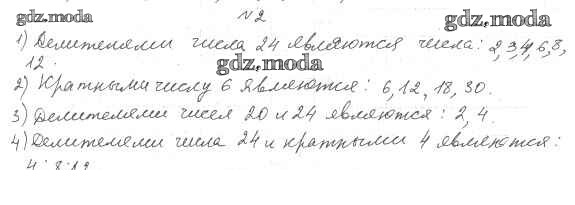 gdz.moda
№2
gdz.moda
1) Делителями числа 24 являются числа: 2,3,4,6,8,
12.
gdz.moda
2) Кратными числу 6 являются: 6, 12, 18, 30.
3) Делителями чисел 20 и 24 являются: 2,4.
4) Делителями числа 24 и кратными 4 являются: